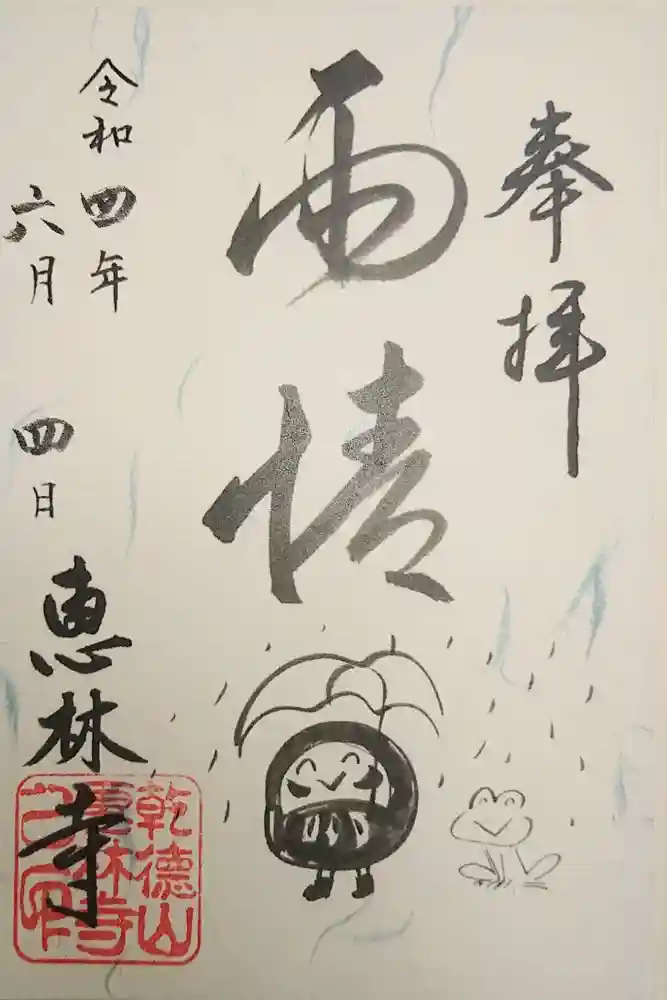 奉拝
雨情
令和四年
六月四日
恵林寺
乾徳山
恵林寺
之印